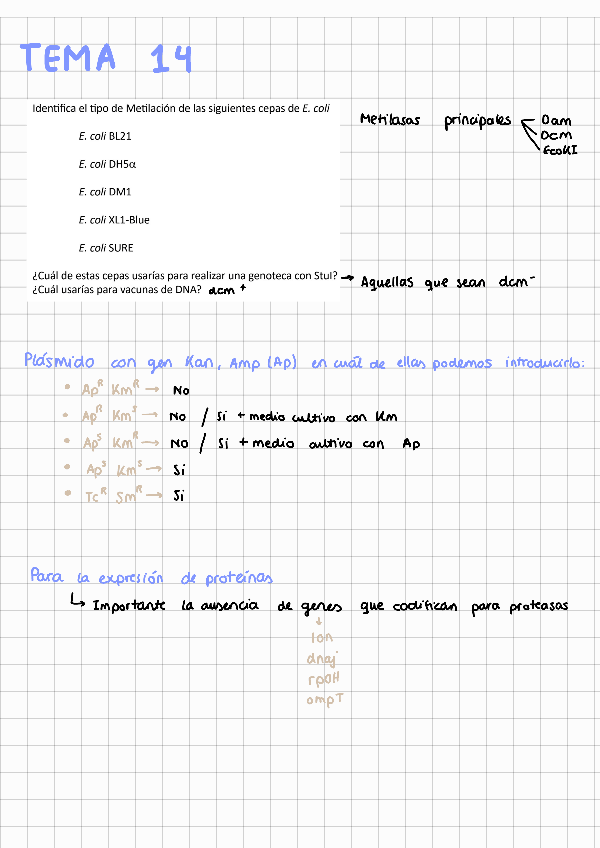 TEMA 14
Identifica el tipo de Metilación de las siguientes cepas de E. coli
E. coli BL21
E. coli DH5α
E. coli DM1
E. coli XL1-Blue
E. coli SURE
¿Cuál de estas cepas usarías para realizar una genoteca con StuI?
¿Cuál usarías para vacunas de DNA? dcm +
Metilasas principales
Dam
Dcm
EcoKI
→ Aquellas que sean dcm⁻
Plásmido con gen Kan, Amp (Ap) en cuál de ellas podemos introducirlo:
• Apᴿ Kmᴿ → No
• Apᴿ Kmˢ → No / Si + medio cultivo con Km
• Apˢ Kmᴿ → No / Si + medio cultivo con Ap
• Apˢ Kmˢ → Si
• Tcᴿ Smᴿ → Si
Para la expresión de proteínas
↳ Importante la ausencia de genes que codifican para proteasas
↓
lon
dnaj
rpoH
ompT